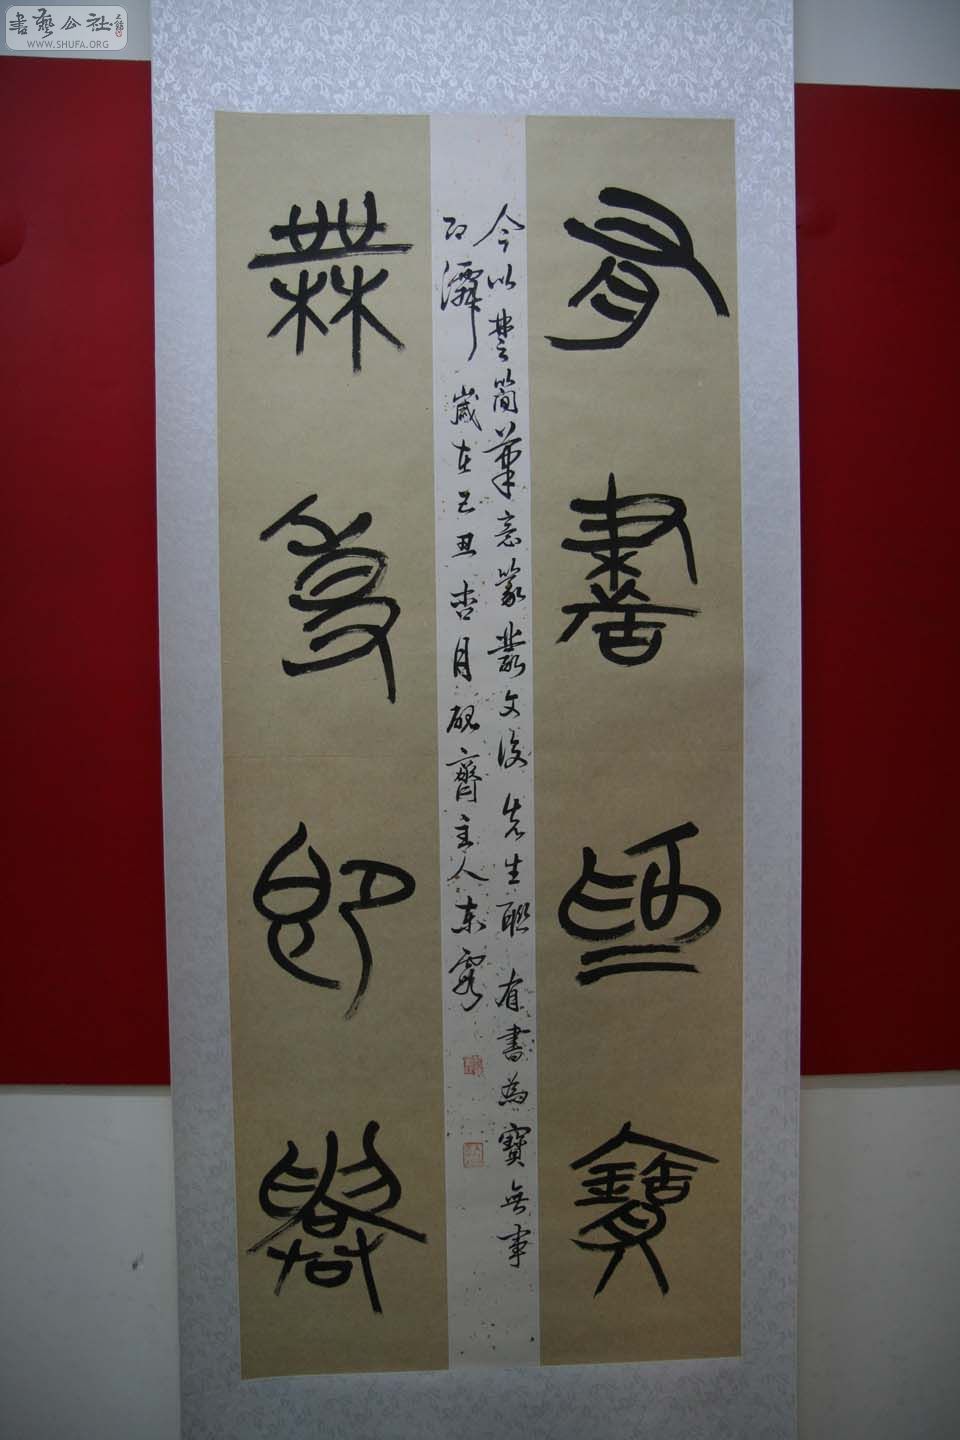 書藝公社
WWW.SHUFA.ORG
有書為寶
今以楚簡筆意篆叢文俊先生聯 有書為寶無事
即僊 歲在己丑杏月硯齋主人东霞
無事即僊